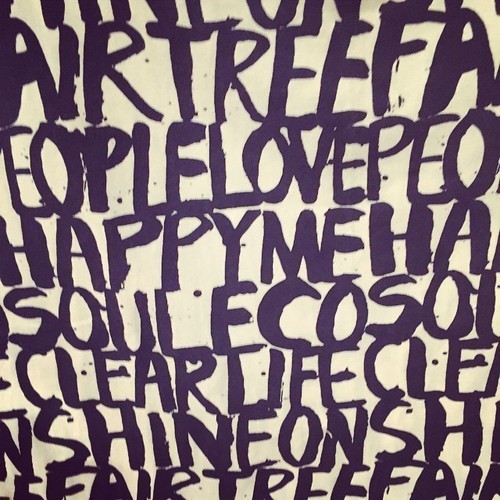 SHINE ON SH
AIR TREE FA
PEOPLE LOVE PEO
HAPPY ME HA
SOUL ECO SOU
E CLEAR LIFE CLEA
ON SHINE ON SH
EE FAIR TREE FAIR